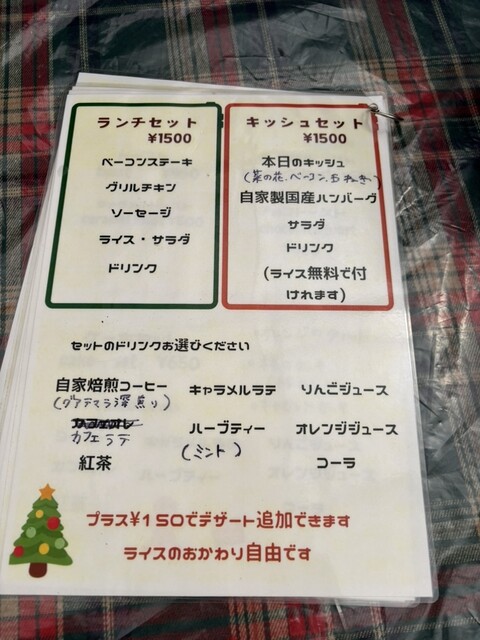 ランチセット
¥1500
ベーコンステーキ
グリルチキン
ソーセージ
ライス・サラダ
ドリンク
キッシュセット
¥1500
本日のキッシュ
(菜の花、ベーコン、玉ねぎ)
自家製国産ハンバーグ
サラダ
ドリンク
(ライス無料で付
けれます)
セットのドリンクお選びください
自家焙煎コーヒー
(グアテマラ深煎り)
カフェラテ
紅茶
キャラメルラテ
ハーブティー
(ミント)
りんごジュース
オレンジジュース
コーラ
プラス¥150でデザート追加できます
ライスのおかわり自由です